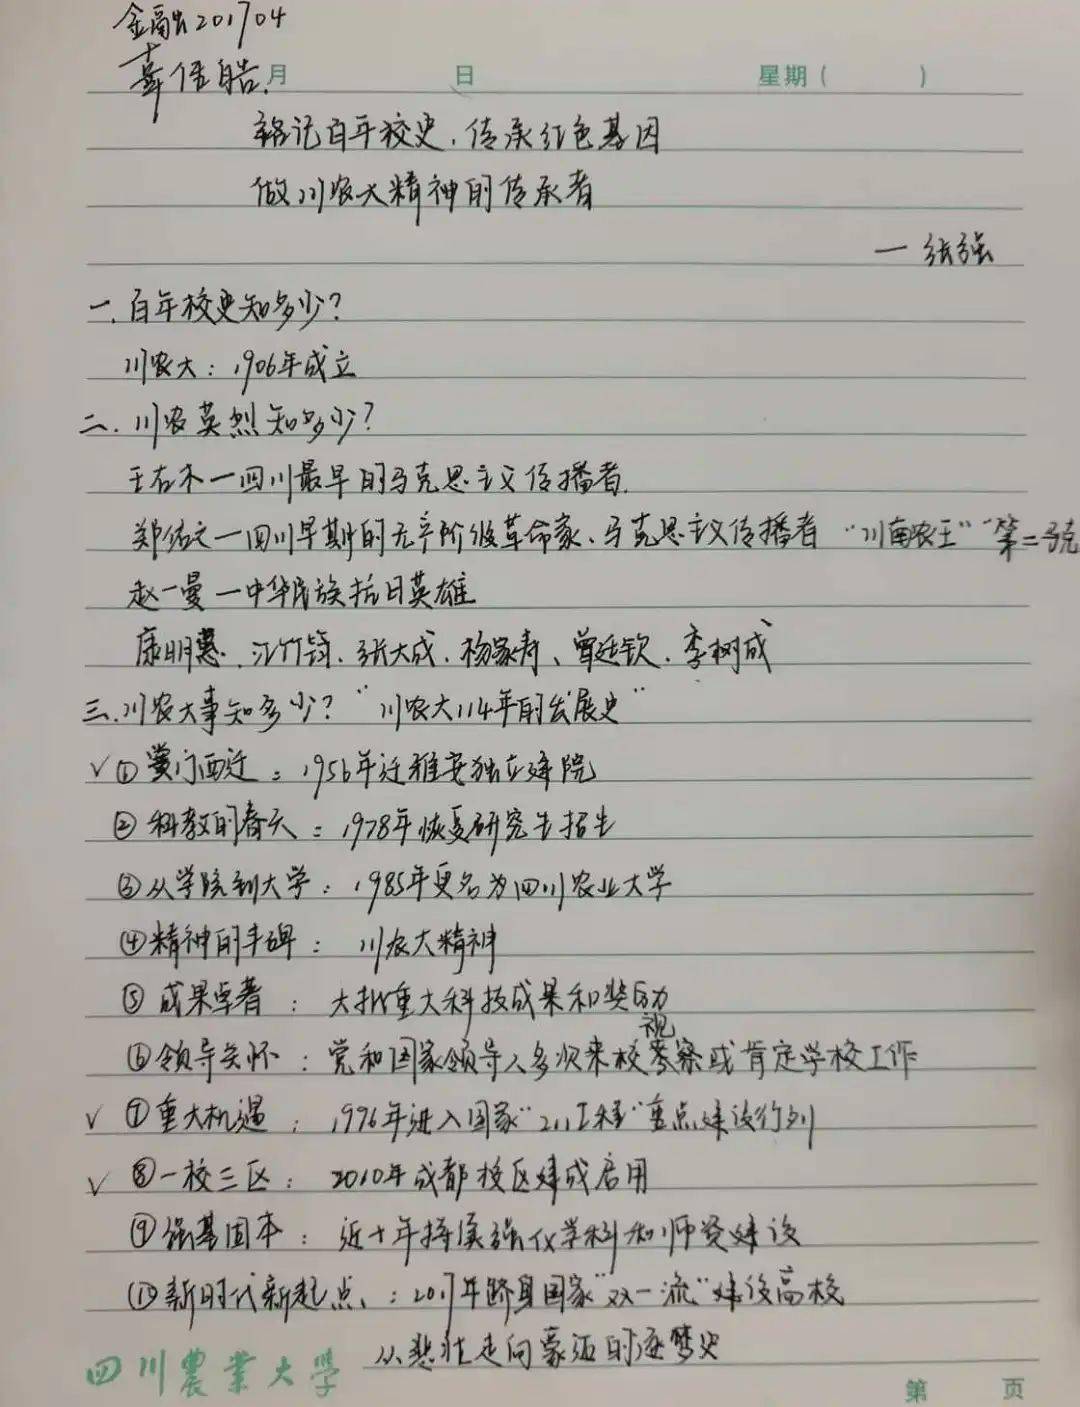 金融201704
辜佳皓
月 日 星期( )
铭记百年校史,传承红色基因
做川农大精神的传承者
一 张强
一.百年校史知多少?
川农大:1906年成立
二.川农英烈知多少?
王右木一四川最早的马克思主义传播者.
郑佑之一四川早期的无产阶级革命家、马克思主义传播者 “川南农王”“第二号克
赵一曼一中华民族抗日英雄
康明惠、江竹筠、张大成、杨家寿、曾廷钦、李树成
三.川农大事知多少?“川农大114年的发展史”
√①蒙门西迁:1956年迁雅安独立建院
②科教的春天:1978年恢复研究生招生
③从学院到大学:1985年更名为四川农业大学
④精神的丰碑:川农大精神
⑤成果卓著:大批重大科技成果和奖励
⑥领导关怀:党和国家领导人多次来校视察或肯定学校工作
√⑦重大机遇:1996年进入国家“211工程”重点建设行列
√⑧一校三区:2010年成都校区建成启用
⑨强基固本:近十年持续强化学科和师资建设
⑩新时代新起点、:2017年跻身国家“双一流”建设高校
从悲壮走向豪迈的逐梦史
四川農業大學
第 页